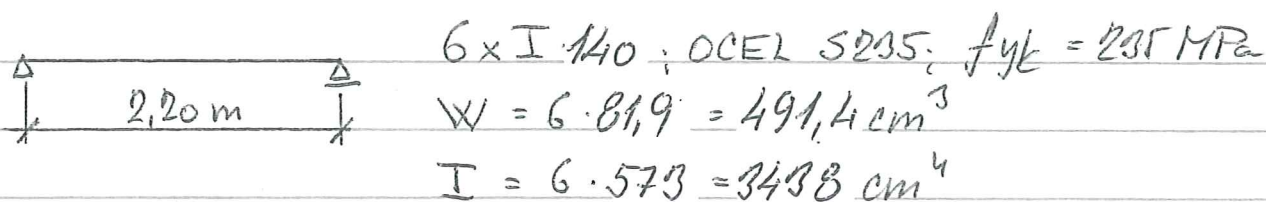 6 x I 140 ; OCEL S235 ; fyk = 235 MPa
2,20 m
W = 6 . 81,9 = 491,4 cm³
I = 6 . 573 = 3438 cm⁴